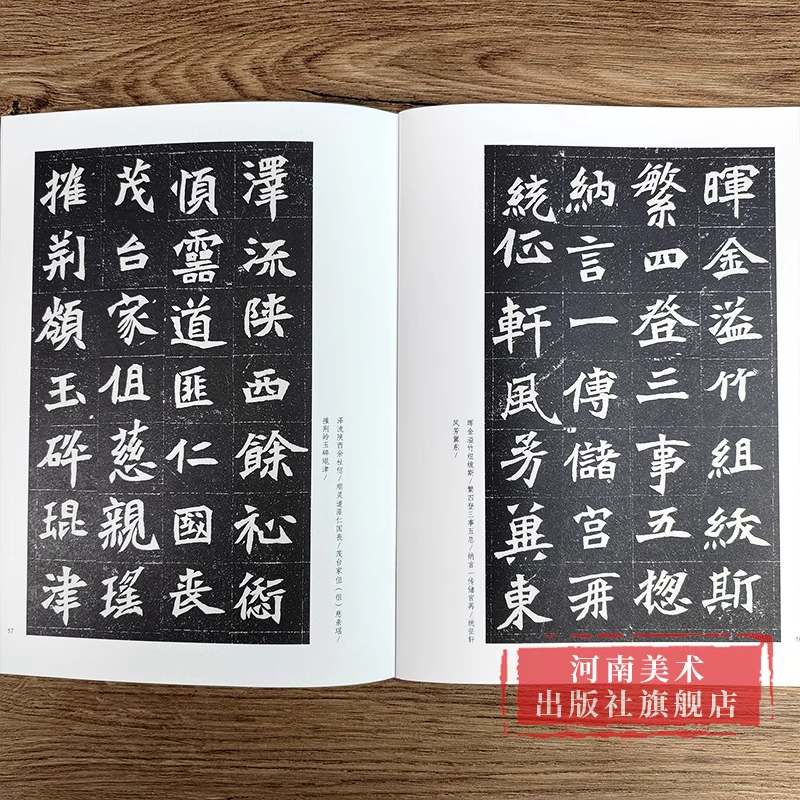 暉金溢竹組紱斯
繁四登三事五揔
納言一傳儲宮再
統征軒風芳冀東
晖金溢竹组绂斯/繁四登三事五总/纳言一传储宫再/统征轩
风芳冀东/
澤流陝西餘祉愆
順靈道匪仁國喪
茂台家伹慈親瑤
摧荊嶺玉碎琨津
泽流陕西余祉愆/顺灵道匪仁国丧/茂台家伹（徂）慈亲瑶/
摧荆岭玉碎琨津/
17
河南美术
出版社旗舰店